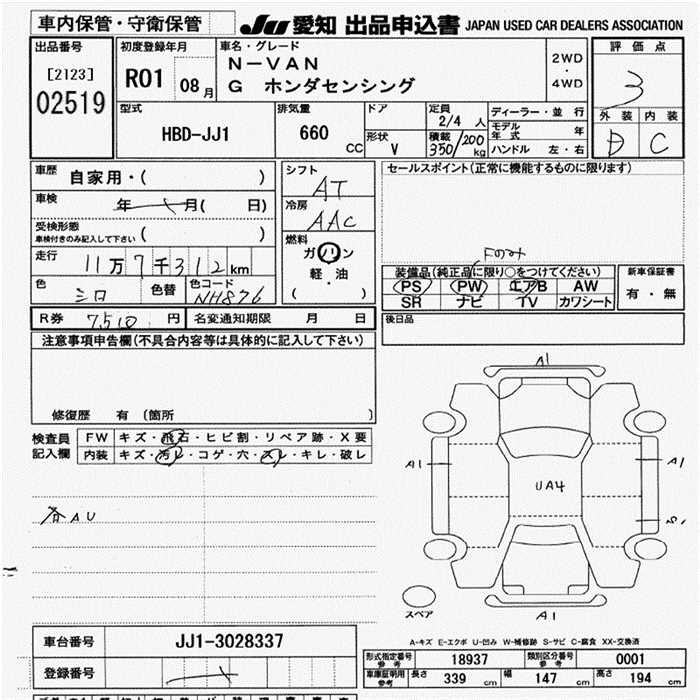 車内保管・守衛保管
JU 愛知 出品申込書 JAPAN USED CAR DEALERS ASSOCIATION
出品番号
[2123]
02519
初度登録年月
R01 08月
車名・グレード
N-VAN
G ホンダセンシング
2WD
・
4WD
評価点
3
外装 内装
D C
型式
HBD-JJ1
排気量
660 CC
ドア
形状
V
定員
2/4 人
積載
350/200 kg
ディーラー・並行
モデル年式 年
ハンドル 左・右
車歴
自家用・( )
車検
年 月( 日)
受検形態
車検付きのみ記入して下さい ( )
走行
11万7千312km
色
シロ
色替
色コード
NH876
シフト
AT
冷房
AAC
燃料
ガソリン
軽・油
( )
セールスポイント(正常に機能するものに限ります)
Fのみ
装備品(純正品に限り○をつけてください)
PS PW エアB AW
SR ナビ TV カワシート
新車保証書
有・無
R券 7,510 円 名変通知期限 月 日
後日品
注意事項申告欄(不具合内容等は具体的に記入して下さい)
修復歴 有 〔箇所 〕
検査員
記入欄
FW キズ・飛石・ヒビ割・リペア跡・X要
内装 キズ・汚レ・コゲ・穴・スレ・キレ・破レ
各AU
A1
A1
A1
UA4
A1
スペア
A-キズ E-エクボ U-凹み W-補修跡 S-サビ C-腐食 XX-交換済
車台番号 JJ1-3028337
登録番号
形式指定番号
参考
18937
類別区分番号
参考
0001
車庫証明用
参考
長さ 339 cm 幅 147 cm 高さ 194 cm